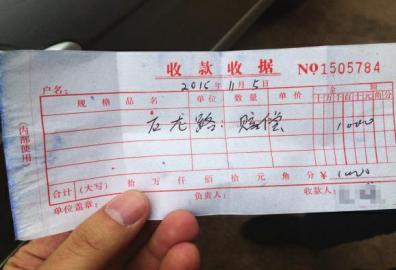 收款收据 NO 1505784
户名： 2015年11月5日
规格品名 单位 数量 单价 金额
十万千百十元角分
石龙路. 赔偿 1000
合计（大写） 拾 万 仟 佰 拾 元 角 分 ￥ 1000
单位盖章： 负责人： 收款人：
（内部使用）